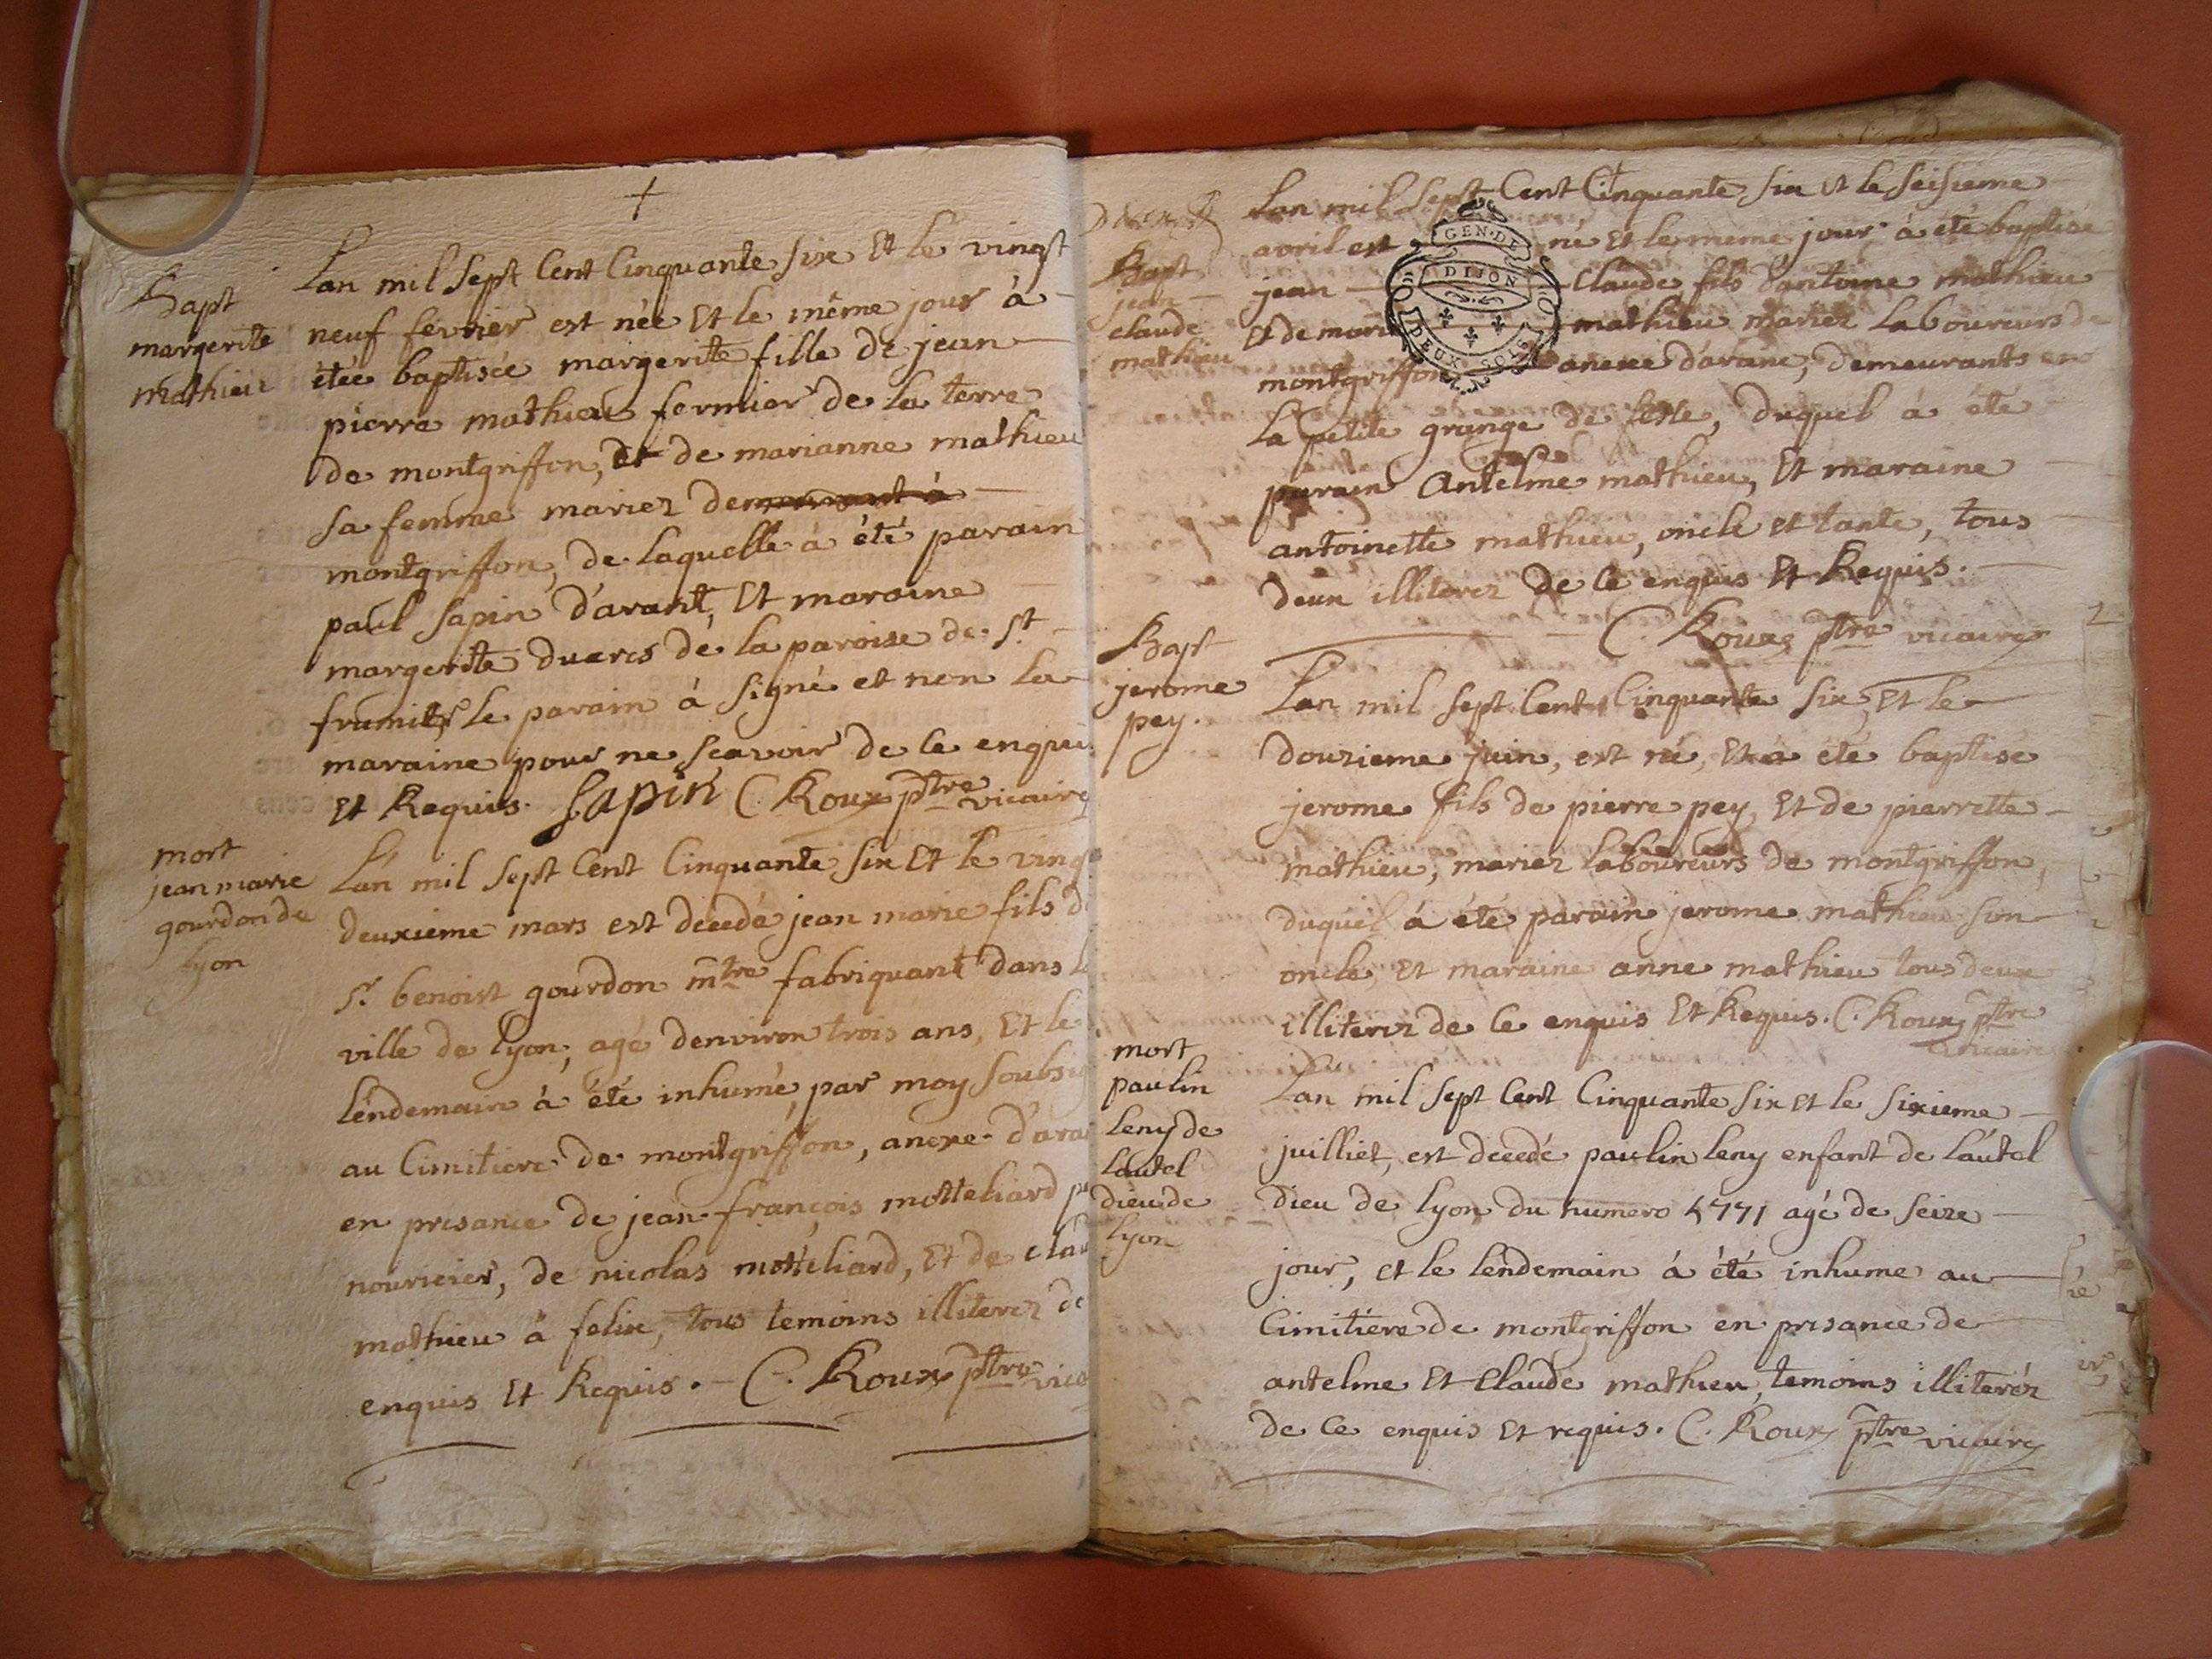 Bapt
margerite
mathieu
Lan mil sept Cent Cinquante six Et le vingt
neuf fevrier est née Et le même jour à
étée baptisée margerite fille de jean
pierre mathieu fermier de la terre
de montgriffon, Et de marianne mathieu
sa femme mariez demeurant à
montgriffon, de laquelle à été parain
paul sapin d'arant, Et maraine
margerite duarcs de la paroise de St
le parain à signé et non la
maraine pour ne scavoir de Ce enquis
Et Requis. sapin C. Roux ptre vicaire
mort
jean marie
gourdon de
lyon
L'an mil sept Cent Cinquante six Et le vingt
deuxieme mars est décedé jean marie fils d
sr benoist gourdon mtre fabriquant dans l
ville de lyon, agé denviron trois ans, Et le
léndemain à été inhumé par moy soubsig
au Cimitiere de montgriffon, anexe d'aran
en presance de jean françois motteliard p
nouricier, de nicolas motteliard, Et de clau
mathieu à felix, tous temoins illiterez de
enquis Et Requis. C. Roux ptre vica
Bapt
jean
claude
mathieu
Lan mil sept Cent Cinquante six et le seisieme
avril est né Et le meme jour à été baptisé
jean Claude fils d'antoine mathieu
Et de marie mathieu mariez laboureurs de
montgriffon anexe d'aranc, demeurants en
la petite grange de , duquel à été
parain Antelme mathieu, Et maraine
antoinette mathieu, oncle et tante, tous
deux illiterez de Ce enquis Et Requis.
C. Roux ptre vicaire
GEN. DE
DIJON
DEUX SOLS
Bapt
jerome
pey.
Lan mil sept Cent Cinquante six, Et le
douzieme juin, est né, Et à été baptisé
jerome fils de pierre pey, Et de pierrette
mathieu, mariez laboureurs de montgriffon,
duquel à été parain jerome mathieu son
oncle, Et maraine anne mathieu tous deux
illiterez de Ce enquis Et Requis. C. Roux ptre
vicaire
mort
paulin
leny de
lautel
dieu de
lyon
Lan mil sept Cent Cinquante six et le sixieme
juilliet, est décedé paulin leny enfant de láutel
dieu de lyon du numero agé de seize
jour, et le lendemain à été inhume au
Cimitiére de montgriffon en presance de
antelme Et Claude mathieu, temoins illiteréz
de Ce enquis Et requis. C. Roux ptre vicaire